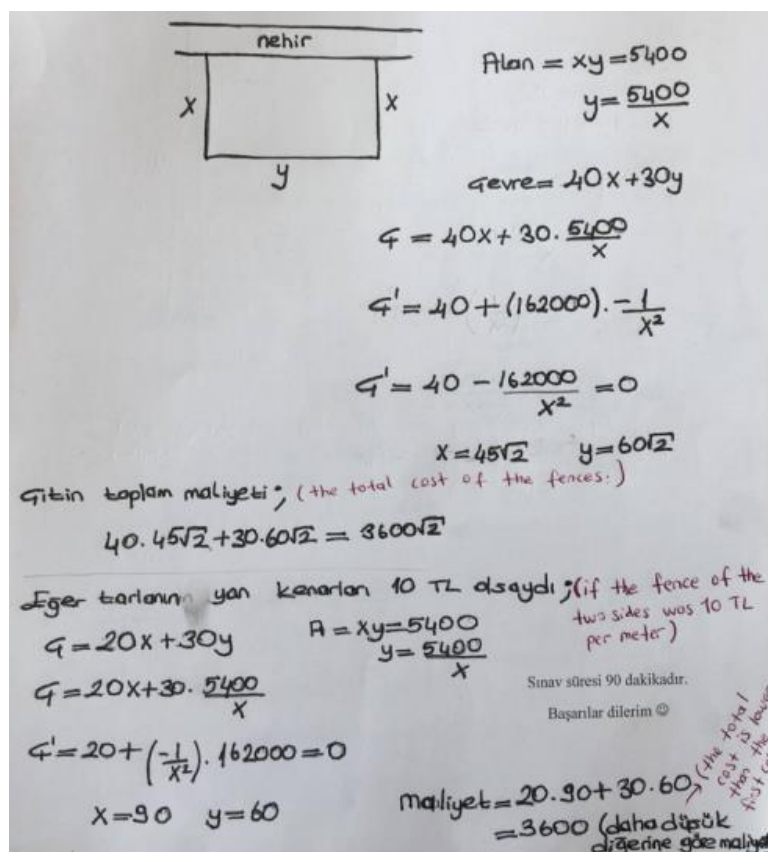 nehir
x
x
y
Alan = xy = 5400
y = 5400/x
Çevre = 40x + 30y
Ç = 40x + 30 . 5400/x
Ç' = 40 + (162000) . -1/x²
Ç' = 40 - 162000/x² = 0
x = 45√2 y = 60√2
Çitin toplam maliyeti; (the total cost of the fences.)
40. 45√2 + 30.60√2 = 3600√2
Eğer tarlanın yan kenarları 10 TL olsaydı; (if the fence of the two sides was 10 TL per meter)
Ç = 20x + 30y
A = xy = 5400
y = 5400/x
Ç = 20x + 30. 5400/x
Ç' = 20 + (-1/x²) . 162000 = 0
x = 90 y = 60
Sınav süresi 90 dakikadır.
Başarılar dilerim ☺
maliyet = 20.90 + 30.60
= 3600 (daha düşük
diğerine göre
(the total
cost is
than the
first